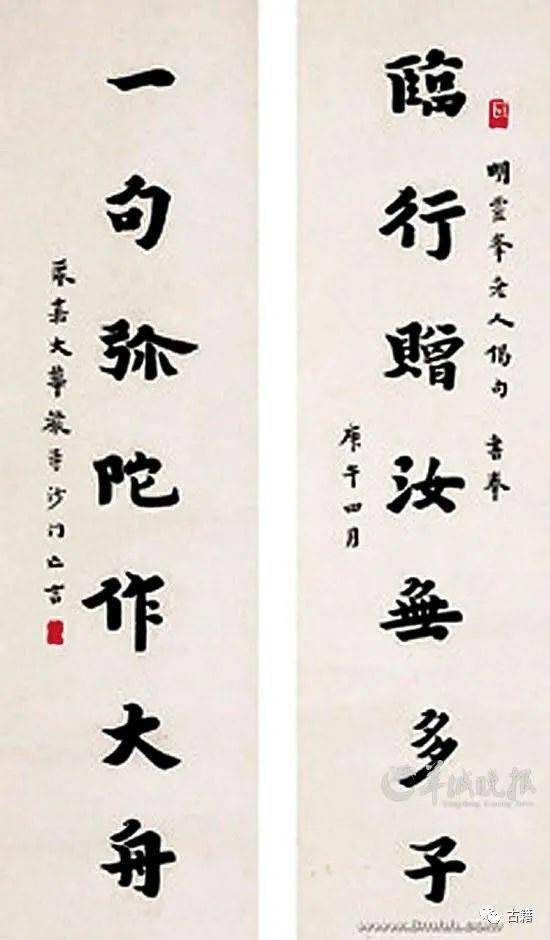 明靈峯老人偈句 書奉
臨行贈汝無多子
庚午四月
一句弥陀作大舟
永嘉大華嚴寺沙門亡言
羊城晚报
古籍